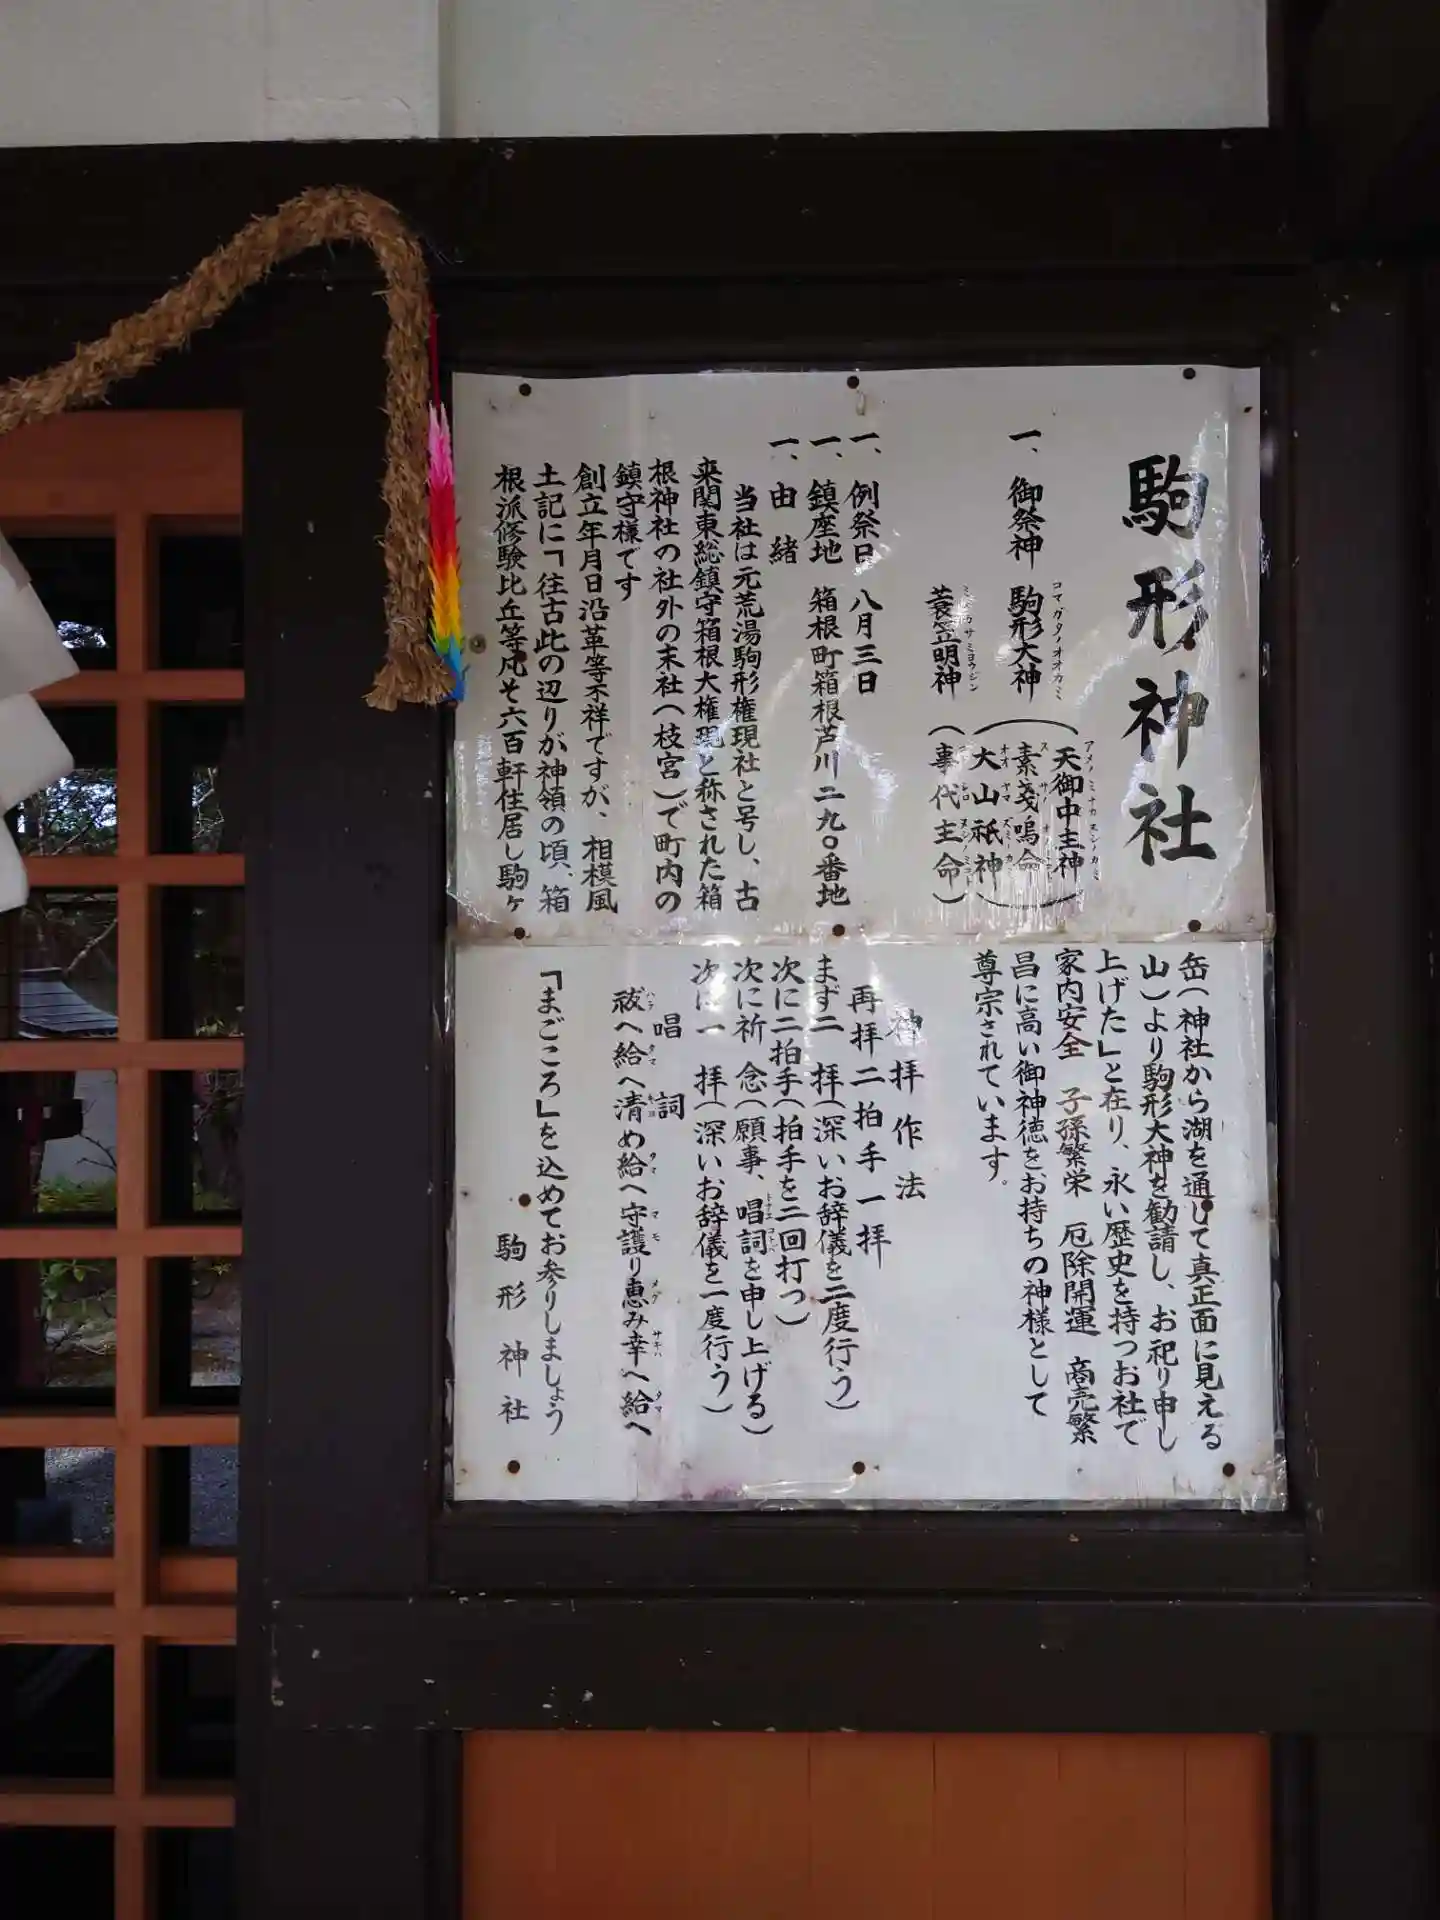 駒形神社
一、御祭神 駒形大神 (天御中主神
コマガタノオオカミ アメノミナカヌシノカミ
素戔嗚命
大山祇神)
蓑笠明神 (事代主命)
一、例祭日 八月三日
一、鎮座地 箱根町箱根芦川二九〇番地
一、由緒
当社は元荒湯駒形権現社と号し、古
来関東総鎮守箱根大権現と称された箱
根神社の社外の末社(枝宮)で町内の
鎮守様です
創立年月日沿革等不祥ですが、相模風
土記に「往古此の辺りが神領の頃、箱
根派修験比丘等凡そ六百軒住居し駒ヶ
岳(神社から湖を通して真正面に見える
山)より駒形大神を勧請し、お祀り申し
上げた」と在り、永い歴史を持つお社で
家内安全 子孫繁栄 厄除開運 商売繁
昌に高い御神徳をお持ちの神様として
尊宗されています。
神拝作法
再拝二拍手一拝
まず二拝(深いお辞儀を二度行う)
次に二拍手(拍手を二回打つ)
次に祈念(願事、唱詞を申し上げる)
次に一拝(深いお辞儀を一度行う)
唱詞
祓へ給へ清め給へ守護り恵み幸へ給へ
「まごころ」を込めてお参りしましょう
駒形神社